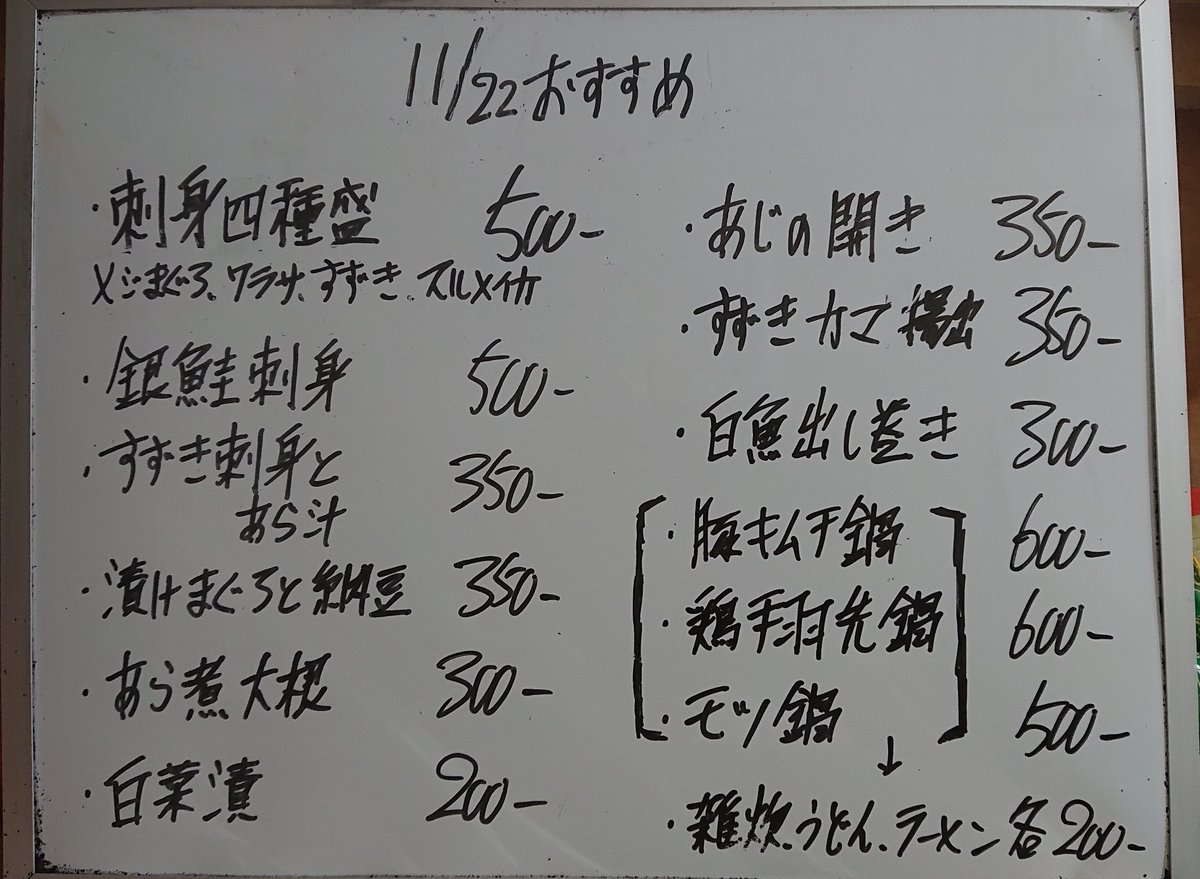 11/22おすすめ
・刺身四種盛 500-
メジまぐろ、ワラサ、すずき、スルメイカ
・銀鮭刺身 500-
・すずき刺身と
あら汁 350-
・漬けまぐろと納豆 350-
・あら煮大根 300-
・白菜漬 200-
・あじの開き 350-
・すずきカマ揚出 350-
・白魚出し巻き 300-
・豚キムチ鍋 600-
・鶏手羽先鍋 600-
・モツ鍋 500-
↓
・雑炊、うどん、ラーメン各200-